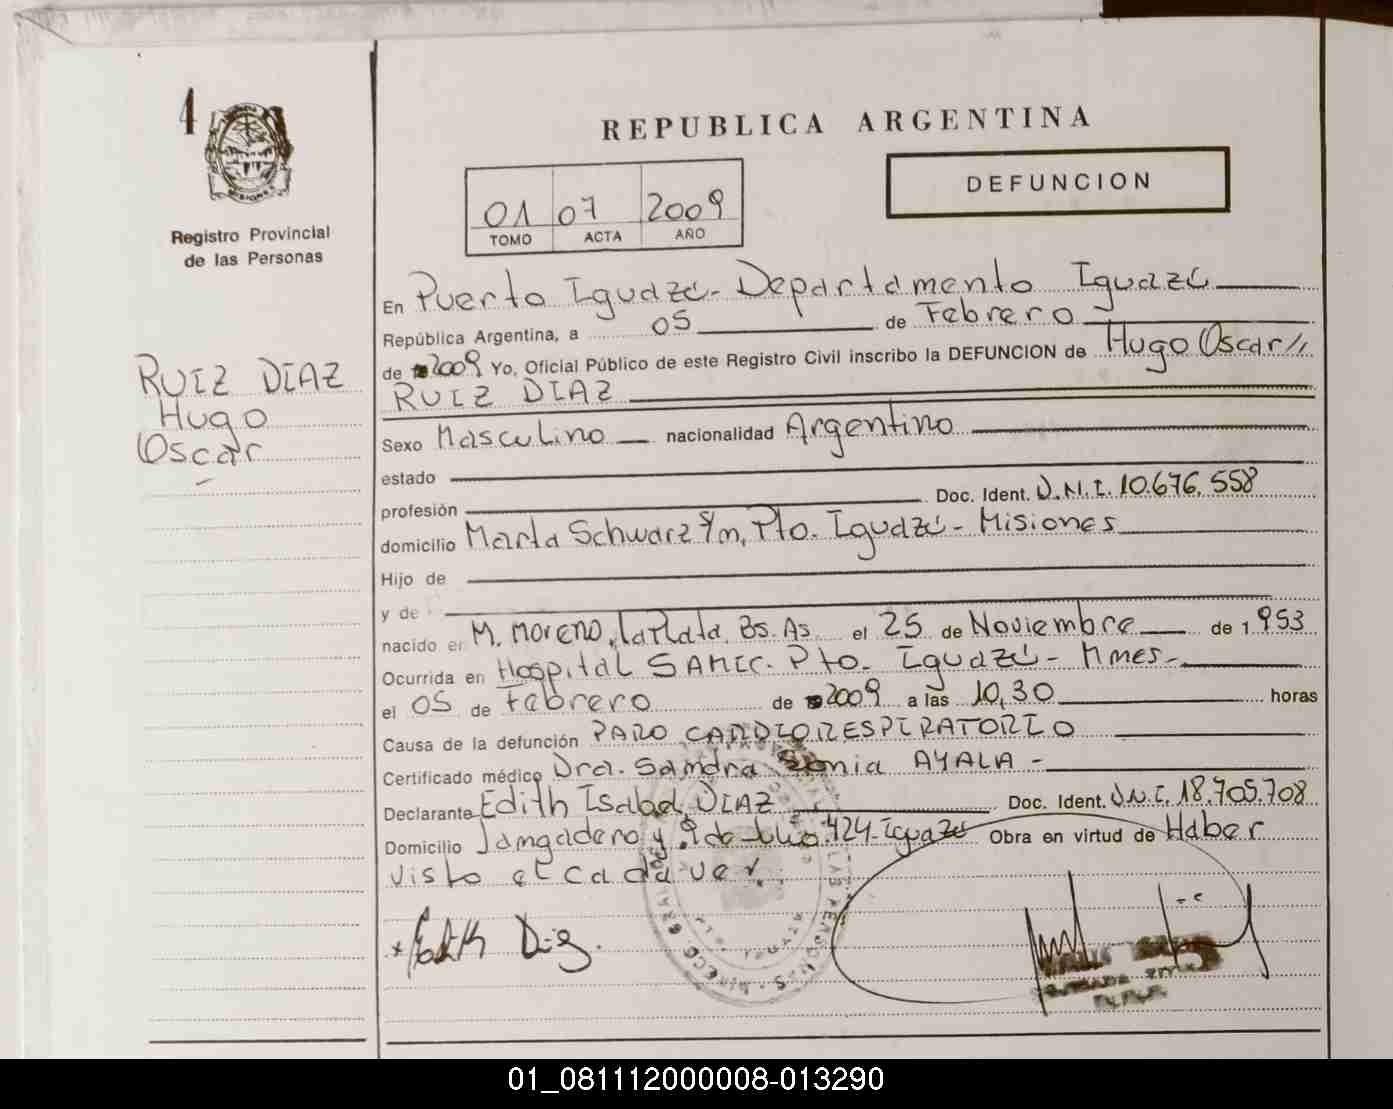 4
Registro Provincial
de las Personas
RUIZ DIAZ
Hugo
Oscar
REPUBLICA ARGENTINA
DEFUNCION
01 07 2009
TOMO ACTA AÑO
En Puerto Iguazú - Departamento Iguazú
República Argentina, a 05 de Febrero
de 2009 Yo, Oficial Público de este Registro Civil inscribo la DEFUNCION de Hugo Oscar //
RUIZ DIAZ
Sexo Masculino nacionalidad Argentino
estado
profesión Doc. Ident. D.N.I. 10.676.558
domicilio Marta Schwarz s/n, Pto. Iguazú - Misiones
Hijo de
y de
nacido en M. Moreno, La Plata, Bs. As. el 25 de Noviembre de 1953
Ocurrida en Hospital SAMIC. Pto. Iguazú - Mnes -
el 05 de Febrero de 2009 a las 10,30 horas
Causa de la defunción PARO CARDIORESPIRATORIO
Certificado médico Dra. Sandra Sonia AYALA -
Declarante Edith Isabel DIAZ Doc. Ident. D.N.I. 18.705.708
Domicilio Jangadero y 9 de Julio 424 - Iguazú Obra en virtud de Haber
visto el cadaver.
Edith Diaz.
01_081112000008-013290